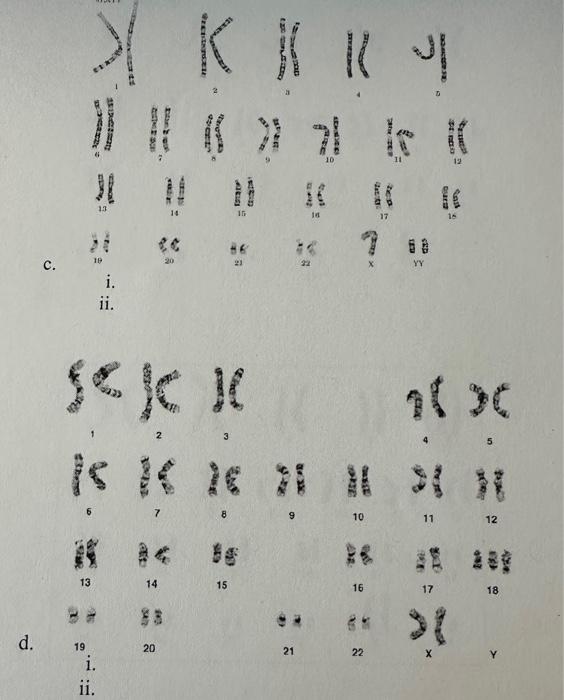 1 2 3 4 5
6 7 8 9 10 11 12
13 14 15 16 17 18
19 20 21 22 X YY
c.
i.
ii.
1 2 3 4 5
6 7 8 9 10 11 12
13 14 15 16 17 18
19 20 21 22 X Y
d.
i.
ii.